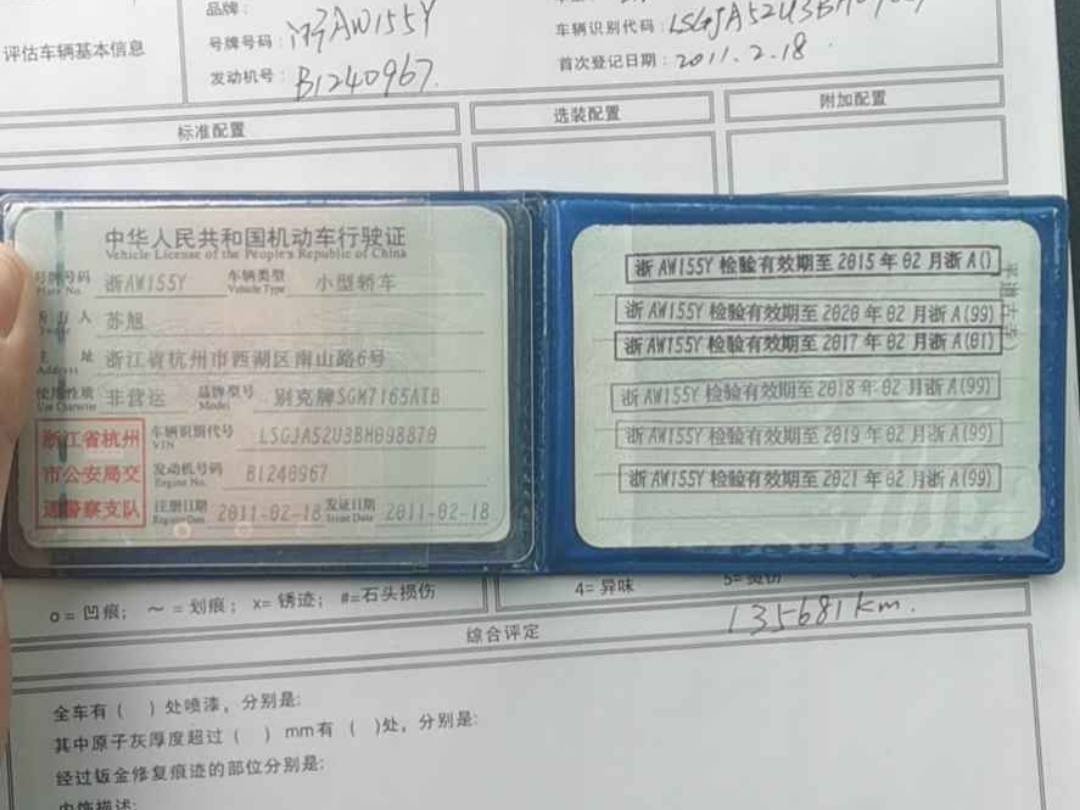 品牌：
评估车辆基本信息
号牌号码：浙AW155Y
车辆识别代码：
发动机号：B1240967.
首次登记日期：2011.2.18
标准配置
选装配置
附加配置
中华人民共和国机动车行驶证
Vehicle License of the People's Republic of China
号牌号码 浙AW155Y 车辆类型 小型轿车
Plate No. Vehicle Type
所有人 苏旭
Owner
住址 浙江省杭州市西湖区南山路6号
Address
使用性质 非营运 品牌型号 别克牌SGM7165ATB
Use Character Model
浙江省杭州
市公安局交
通警察支队
车辆识别代号 LSGJA52U3BH098870
VIN
发动机号码 B1240967
Engine No.
注册日期 2011-02-18 发证日期 2011-02-18
Register Date Issue Date
浙AW155Y 检验有效期至 2015 年 02 月浙A()
浙AW155Y 检验有效期至 2020 年 02 月浙A(99)
浙AW155Y 检验有效期至 2017 年 02 月浙A(01)
浙AW155Y 检验有效期至 2018 年 02 月浙A(99)
浙AW155Y 检验有效期至 2019 年 02 月浙A(99)
浙AW155Y 检验有效期至 2021 年 02 月浙A(99)
o= 凹痕； ～ = 划痕； x= 锈迹； #=石头损伤
4= 异味
135681km.
综合评定
全车有（ ）处喷漆，分别是:
其中原子灰厚度超过（ ）mm有（ ）处，分别是:
经过钣金修复痕迹的部位分别是:
内饰描述: